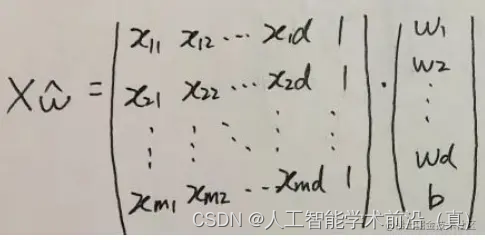 Xŵ = | x11 x12 ⋯ x1d 1 | · | w1 |
| x21 x22 ⋯ x2d 1 | | w2 |
| ⋮ ⋮ ⋱ ⋮ ⋮ | | ⋮ |
| xm1 xm2 ⋯ xmd 1 | | wd |
| b |
CSDN @人工智能学术前沿（真）